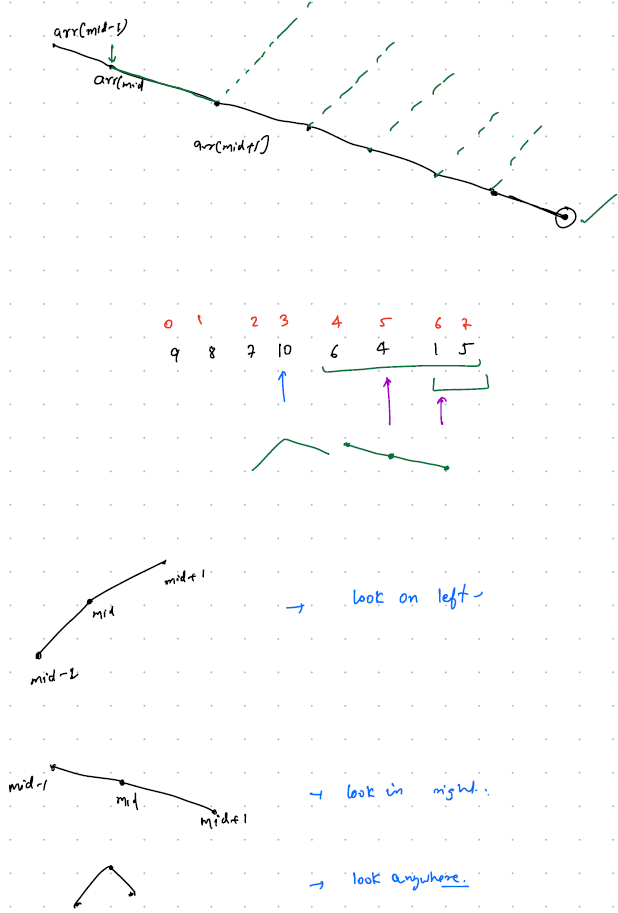 arr(mid-1)
arr(mid
arr(mid+1)
0 1 2 3 4 5 6 7
9 8 7 10 6 4 1 5
mid+1
mid
mid-1
→ look on left
mid-1
mid
mid+1
→ look in right.
→ look anywhere.